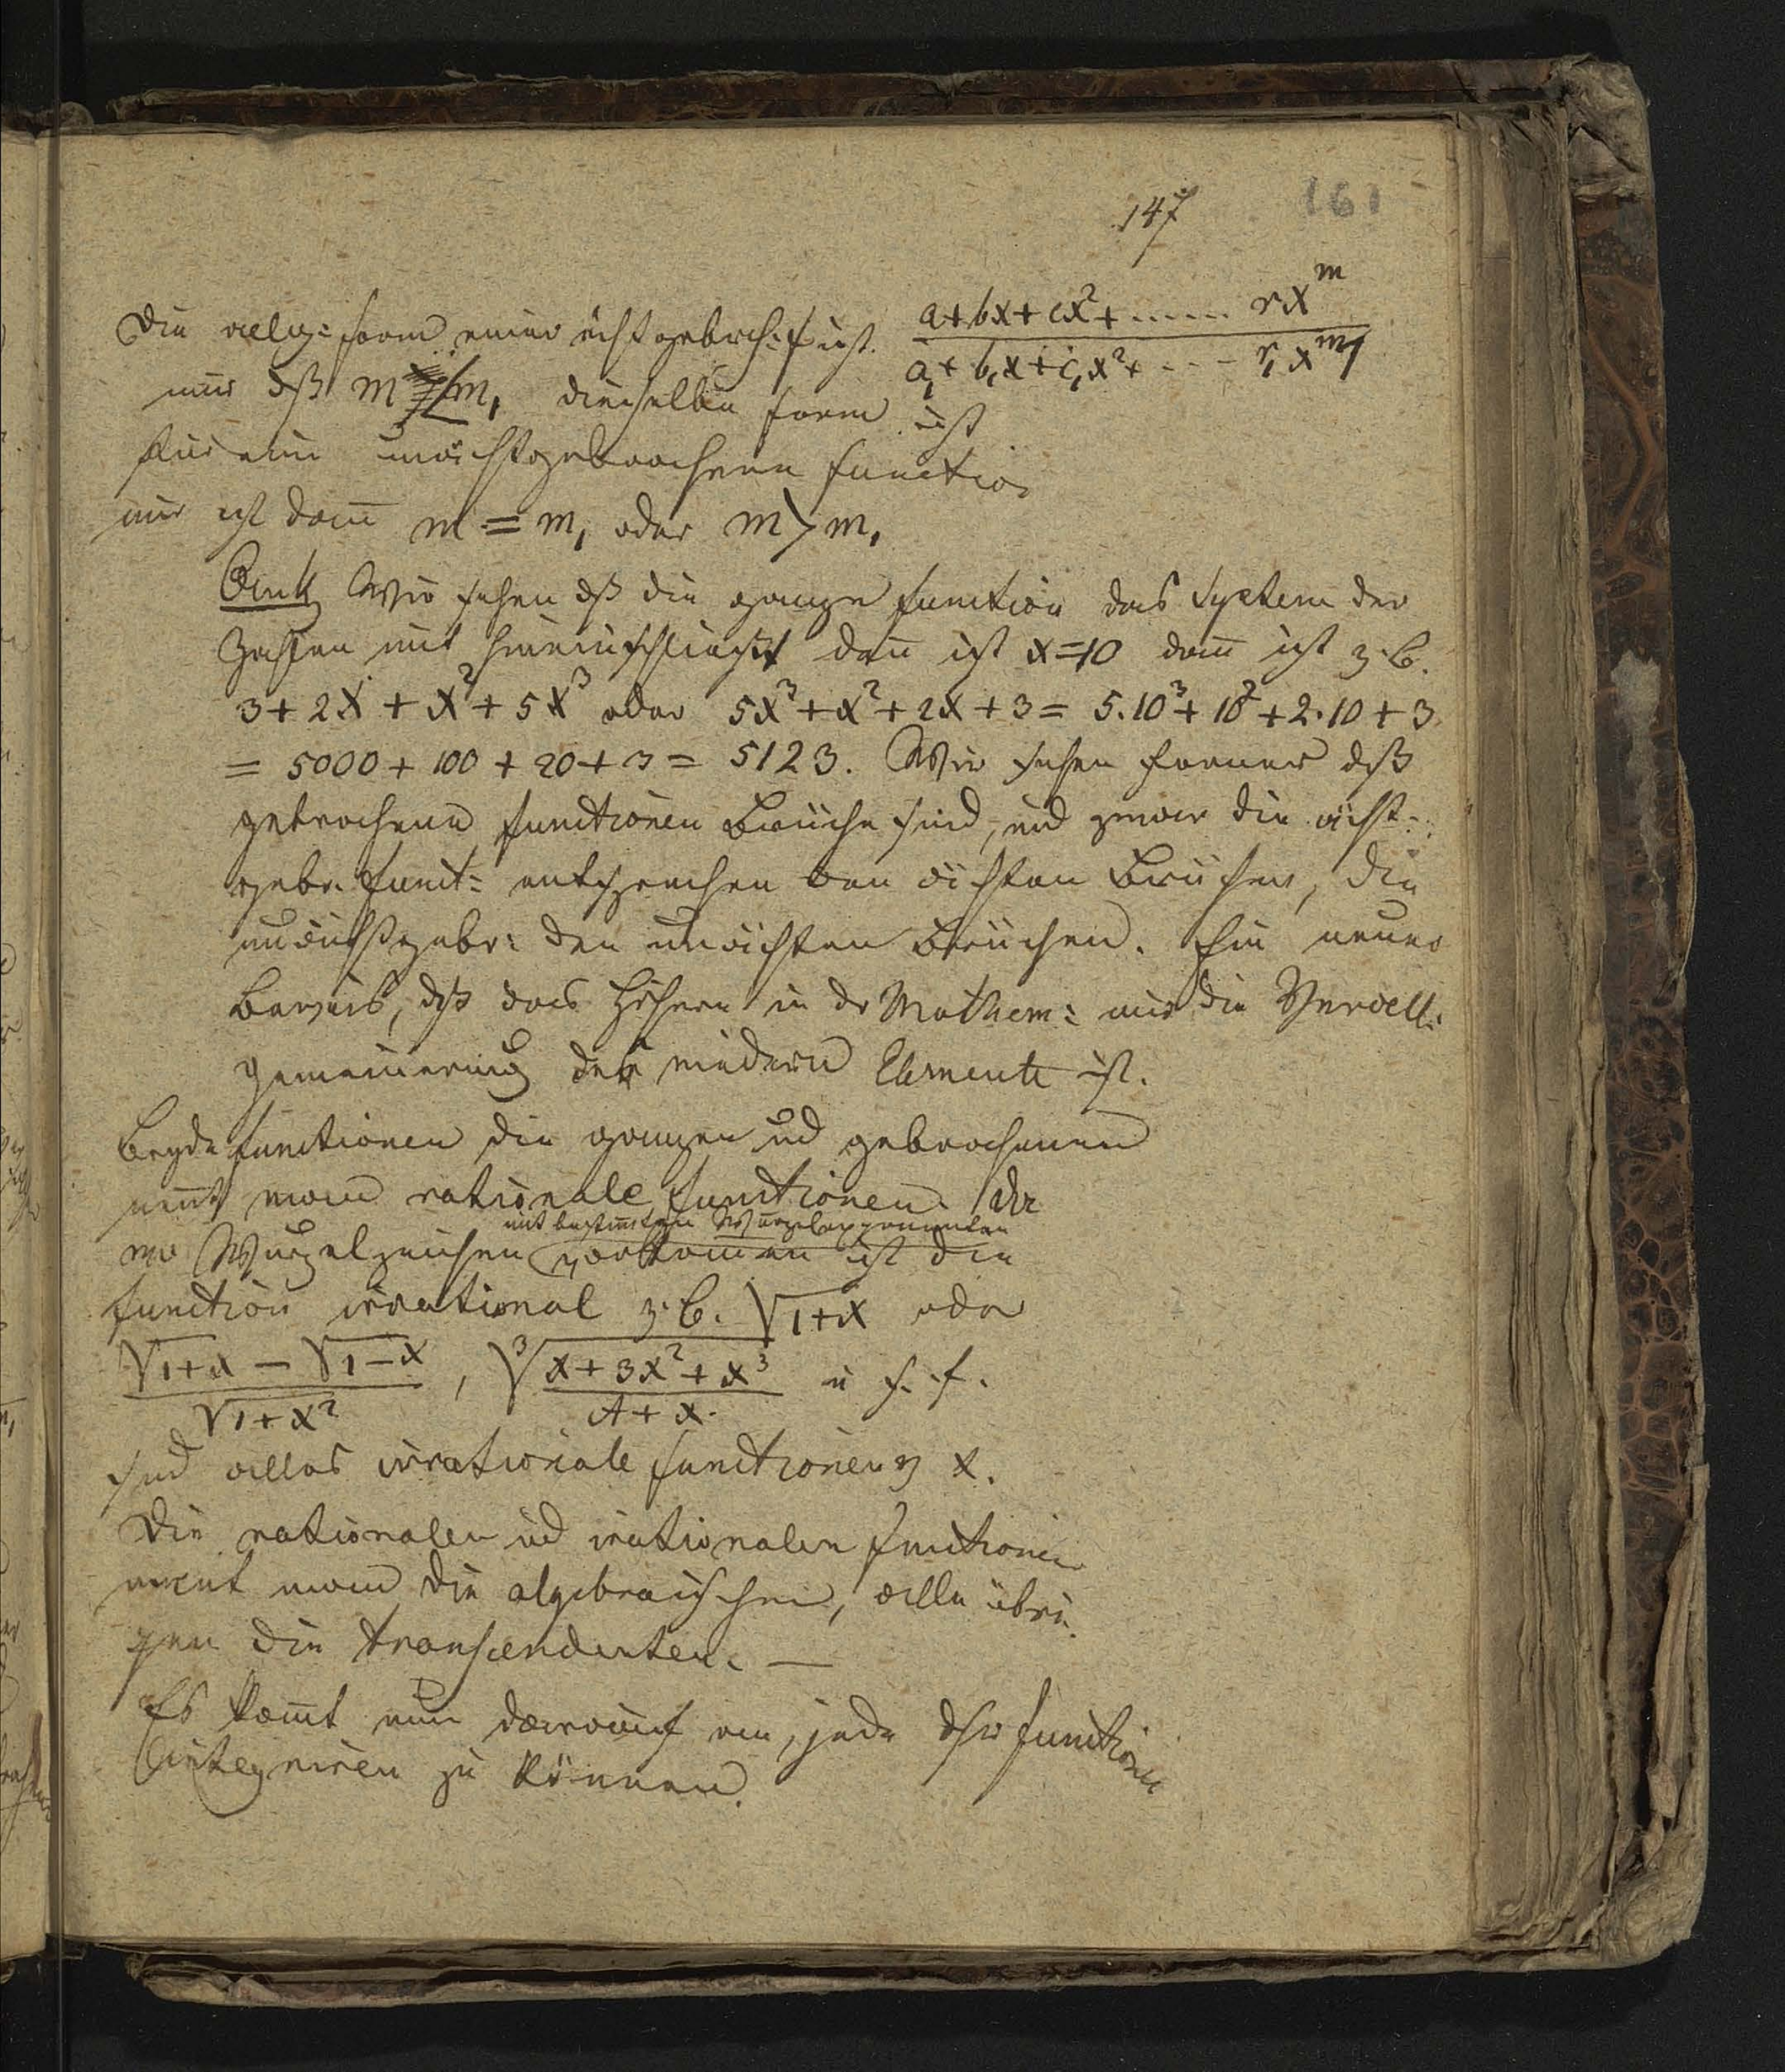 147 161
Die allg: Form einer ächt gebroch: F ist (a+bx+cx²+...... rx^m)/(a,+b,x+c,x²+...- r,x^m,)
nur dß m < m, dieselbe Form ist
für eine unächtgebrochene Function
nur ist dann m = m, oder m > m,
Wir sehen dß die ganze Function das System der
Zahlen mit hineinschließt dann ist x=10 dann ist z.B.
3+2x+x²+5x³ oder 5x³+x²+2x+3 = 5.10³+10²+2.10+3
= 5000+100+20+3 = 5123. Wir sehen ferner dß
gebrochene Functionen Brüche sind, und zwar die ächt-
gebr. Funct: entsprechen den ächten Brüchen, die
unächtgebr: den unächten Brüchen. Ein neuer
Beweis, dß das Höhere in dr Mathem: nur die Verall-
gemeinerung der niedern Elemente ist.
Beyde Functionen die ganzen und gebrochenen
nent man rationale Functionen. Da
mit bestimten Wurzelexponenten
wo Wurzelzeichen vorkomen ist die
Function irrational z.B. √1+x oder
(√1+x − √1−x)/√1+x² , ³√(x+3x²+x³)/(A+x) u s. f.
sind alles irrationale Functionen v x.
Die rationalen und irationalen Functionen
nent man die algebraischen, alle übri-
gen die transcendenten. —
Es komt nun darauf an, jede dsr Functionen
integriren zu können.